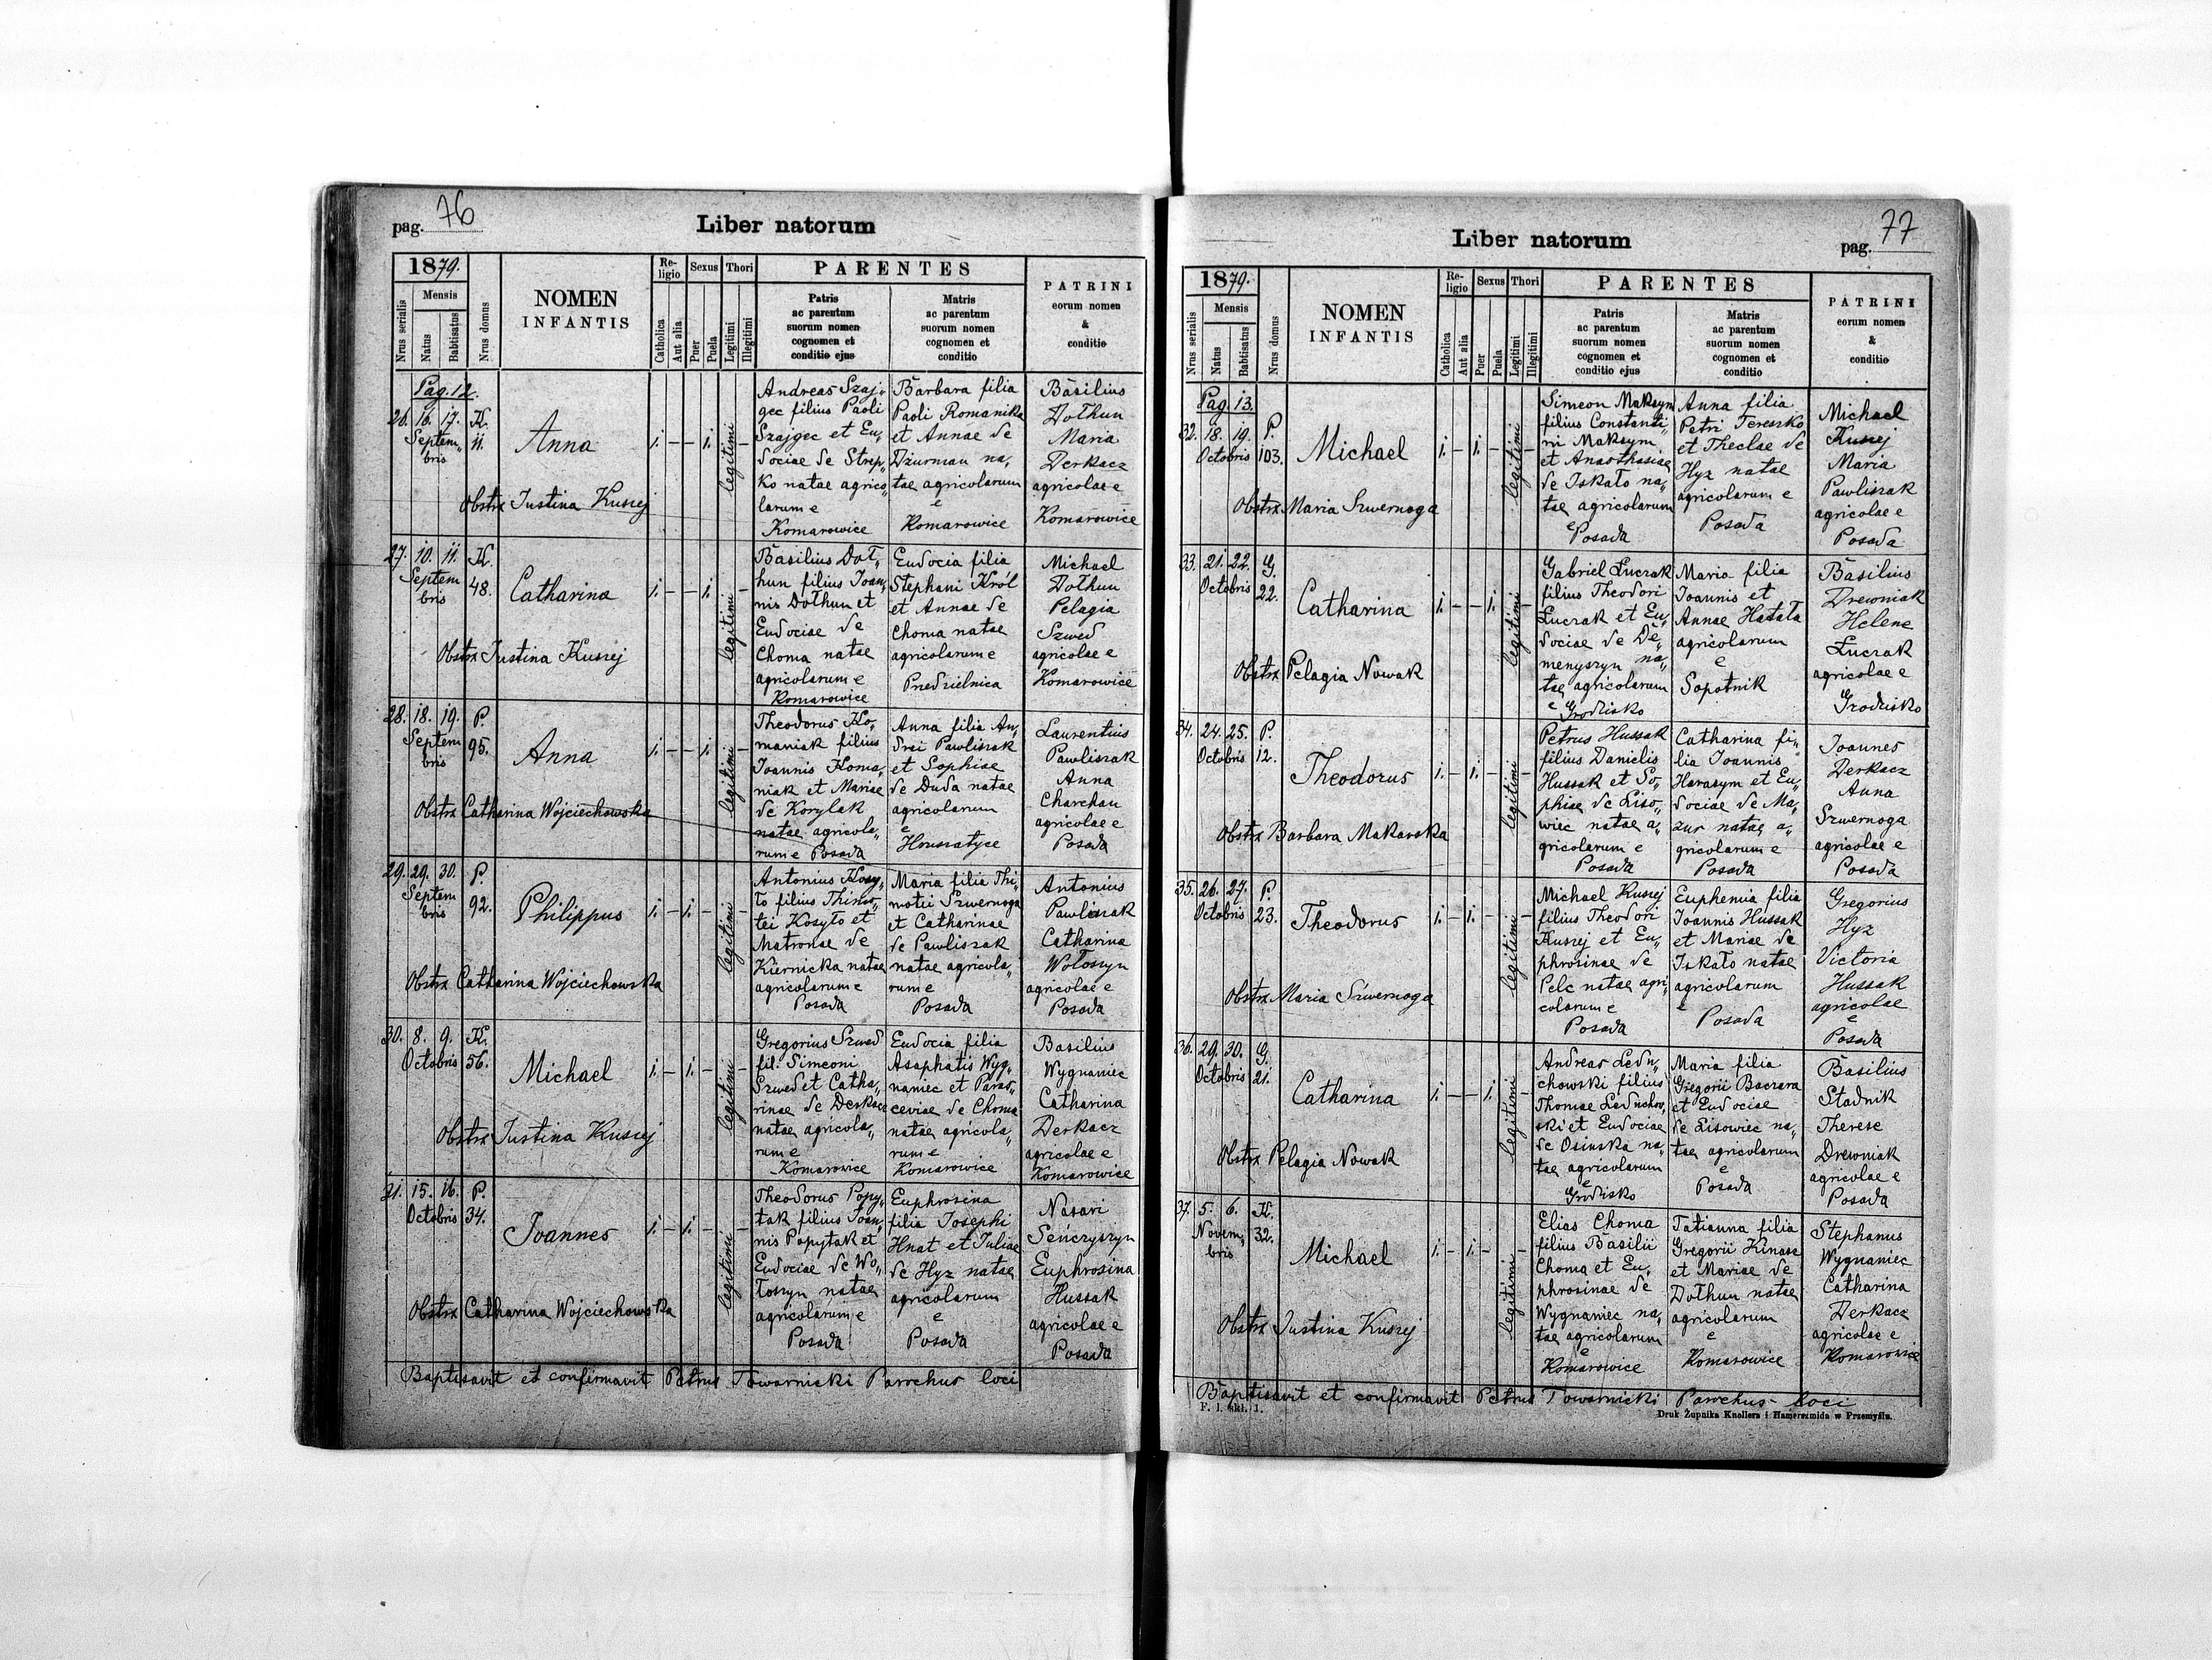 pag. 76
Liber natorum
1879.
Mensis
Nrus serialis
Natus
Babtisatus
Nrus domus
NOMEN
INFANTIS
Re-
ligio
Catholica
Aut alia
Sexus
Puer
Puela
Thori
Legitimi
Illegitimi
PARENTES
Patris
ac parentum
suorum nomen
cognomen et
conditio ejus
Matris
ac parentum
suorum nomen
cognomen et
conditio
PATRINI
eorum nomen
&
conditio
Pag. 12.
26. 16. 17. K.
Septem„
bris
11.
Anna
1. — — 1. legitimi —
Obstrx Justina Kuszej
Andreas Szaj„
gec filius Paoli
Szajgec et Eu„
dociae de Strep„
ko natae agrico„
larum e
Komarowice
Barbara filia
Paoli Romanika
et Annae de
Dziurman na„
tae agricolarum
e
Komarowice
Basilius
Dołhun
Maria
Derkacz
agricolae e
Komarowice
27. 10. 11. K.
Septem
bris
48.
Catharina
1. — — 1. legitimi —
Obstrx Justina Kuszej
Basilius Doł„
hun filius Joan„
nis Dołhun et
Eudociae de
Choma natae
agricolarum e
Komarowice
Eudocia filia
Stephani Król
et Annae de
Choma natae
agricolarum e
Przedzielnica
Michael
Dołhun
Pelagia
Szwed
agricolae e
Komarowice
28. 18. 19. P.
Septem
bris
95.
Anna
1. — — 1. legitimi —
Obstrx Catharina Wojciechowska
Theodorus Ko„
maniak filius
Joannis Koma„
niak et Mariae
de Korylak
natae agricola„
rum e Posada
Anna filia An„
drei Pawliszak
et Sophiae
de Duda natae
agricolarum
e
Houszatyce
Laurentius
Pawliszak
Anna
Charchan
agricolae e
Posada
29. 29. 30. P.
Septem
bris
92.
Philippus
1. — 1. — legitimi —
Obstrx Catharina Wojciechowska
Antonius Kosy„
ło filius Thimo„
tei Kosyło et
Matronae de
Kiernicka natae
agricolarum e
Posada
Maria filia Thi„
motii Szwernoga
et Catharinae
de Pawliszak
natae agricola„
rum e
Posada
Antonius
Pawliszak
Catharina
Wołoszyn
agricolae e
Posada
30. 8. 9. K.
Octobris 56.
Michael
1. — 1. — legitimi —
Obstrx Justina Kuszej
Gregorius Szwed
fil. Simeoni
Szwed et Catha„
rinae de Derkacz
natae agricola„
rum e
Komarowice
Eudocia filia
Asaphatis Wyg„
naniec et Paras„
ceviae de Choma
natae agricola„
rum e
Komarowice
Basilius
Wygnaniec
Catharina
Derkacz
agricolae e
Komarowice
31. 15. 16. P.
Octobris 34.
Joannes
1. — 1. — legitimi —
Obstrx Catharina Wojciechowska
Theodorus Popy„
tak filius Joan„
nis Popytak et
Eudociae de Wo„
łoszyn natae
agricolarum e
Posada
Euphrosina
filia Josephi
Hnat et Juliae
de Hyz natae
agricolarum
e
Posada
Nasari
Seńczyszyn
Euphrosina
Hussak
agricolae e
Posada
Baptisavit et confirmavit Petrus Towarnicki Parochus loci
Liber natorum
pag. 77
1879.
Mensis
Nrus serialis
Natus
Babtisatus
Nrus domus
NOMEN
INFANTIS
Re-
ligio
Catholica
Aut alia
Sexus
Puer
Puela
Thori
Legitimi
Illegitimi
PARENTES
Patris
ac parentum
suorum nomen
cognomen et
conditio ejus
Matris
ac parentum
suorum nomen
cognomen et
conditio
PATRINI
eorum nomen
&
conditio
Pag. 13.
32. 18. 19. P.
Octobris 103.
Michael
1. — 1. — legitimi —
Obstrx Maria Szwernoga
Simeon Maksym
filius Constanti„
ni Maksym
et Anasthasiae
de Iskało na„
tae agricolarum
e
Posada
Anna filia
Petri Tereszko
et Theclae de
Hyz natae
agricolarum e
Posada
Michael
Kuszej
Maria
Pawliszak
agricolae e
Posada
33. 21. 22. G.
Octobris 22.
Catharina
1. — — 1. legitimi —
Obstrx Pelagia Nowak
Gabriel Łuczak
filius Theodori
Łuczak et Eu„
dociae de De„
menyszyn na„
tae agricolarum
e Grodzisko
Maria filia
Joannis et
Annae Hatała
agricolarum
e
Sopotnik
Basilius
Drewniak
Helene
Łuczak
agricolae e
Grodzisko
34. 24. 25. P.
Octobris 12.
Theodorus
1. — 1. — legitimi —
Obstrx Barbara Makarska
Petrus Hussak
filius Danielis
Hussak et So„
phiae de Liso„
wiec natae a„
gricolarum e
Posada
Catharina fi„
lia Joannis
Harasym et Eu„
dociae de Ma„
zur natae a„
gricolarum e
Posada
Joannes
Derkacz
Anna
Szwernoga
agricolae e
Posada
35. 26. 27. P.
Octobris 23.
Theodorus
1. — 1. — legitimi —
Obstrx Maria Szwernoga
Michael Kuszej
filius Theodori
Kuszej et Eu„
phrosinae de
Pelc natae agri„
colarum e
Posada
Euphemia filia
Joannis Hussak
et Mariae de
Iskało natae
agricolarum
e
Posada
Gregorius
Hyz
Victoria
Hussak
agricolae
e
Posada
36. 29. 30. G.
Octobris 21.
Catharina
1. — — 1. legitimi —
Obstrx Pelagia Nowak
Andreas Ledu„
chowski filius
Thomae Leduchow„
ski et Eudociae
de Osinska na„
tae agricolarum
e
Grodzisko
Maria filia
Gregorii Baczara
et Eudociae
de Lisowiec na„
tae agricolarum
e
Posada
Basilius
Stadnik
Therese
Drewniak
agricolae e
Posada
37. 5. 6. K.
Novem„
bris
32.
Michael
1. — 1. — legitimi —
Obstrx Justina Kuszej
Elias Choma
filius Basilii
Choma et Eu„
phrosinae de
Wygnaniec na„
tae agricolarum
e
Komarowice
Tatianna filia
Gregorii Kinasz
et Mariae de
Dołhun natae
agricolarum
e
Komarowice
Stephanus
Wygnaniec
Catharina
Derkacz
agricolae e
Komarowice
Baptisavit et confirmavit Petrus Towarnicki Parochus loci
F. l. skł. 1.
Druk Żupnika Knollera i Hamerszmida w Przemyślu.